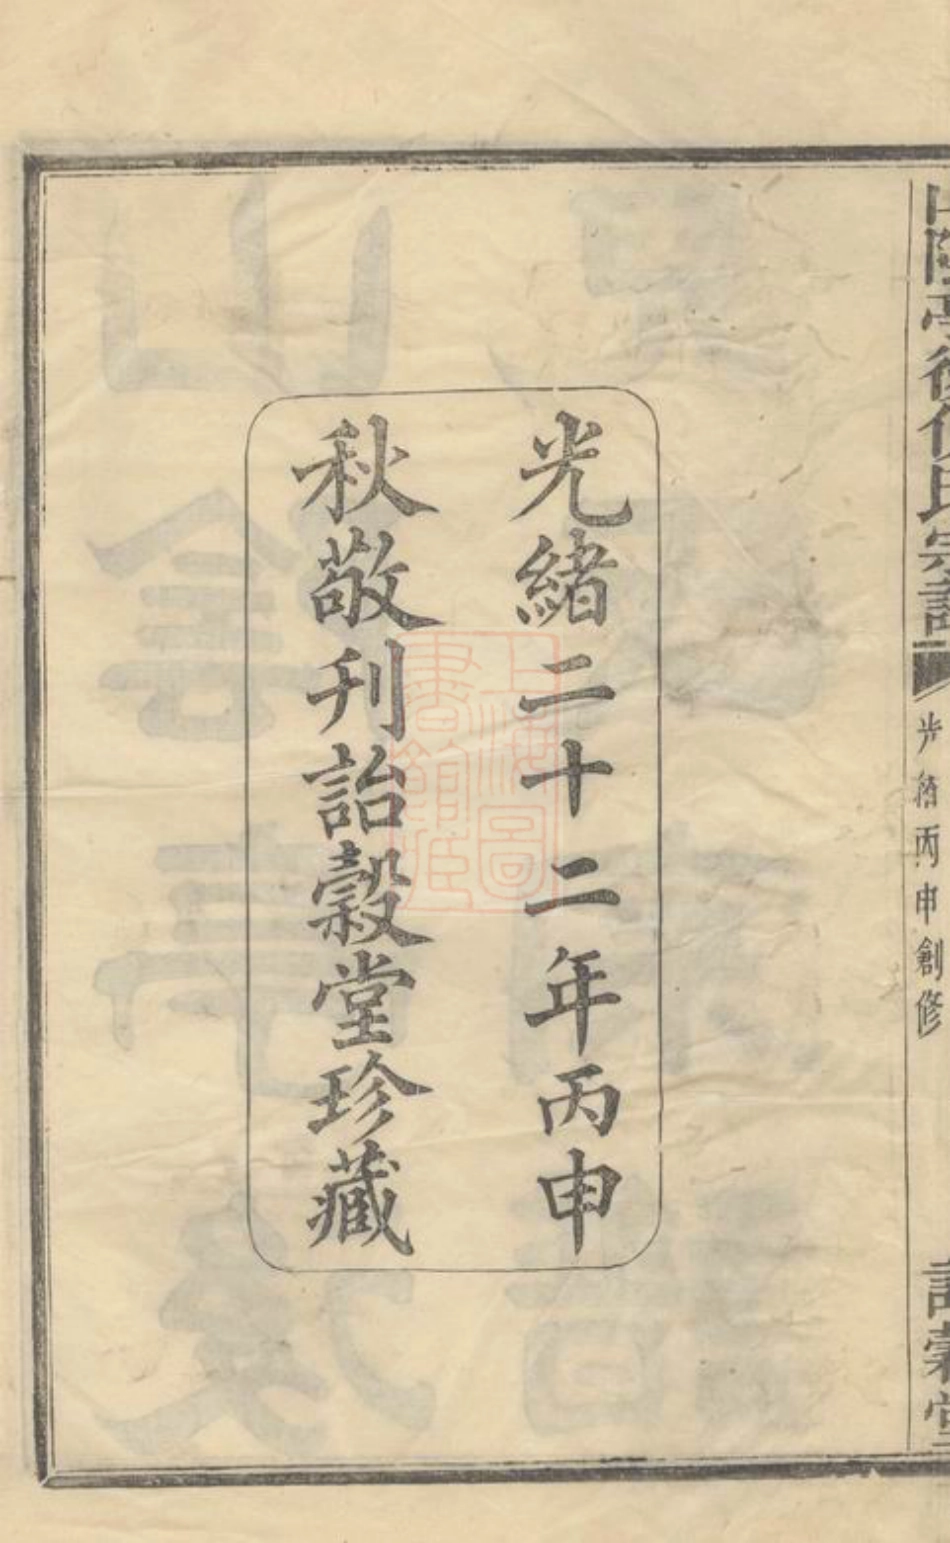 山陰亭後何氏宗譜
光緒丙申創修
詒穀堂
光緒二十二年丙申
秋敬刊詒穀堂珍藏
上海圖書館藏